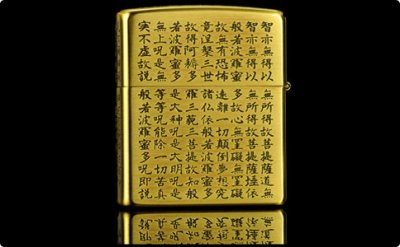 智亦無得以無所得故菩提薩道無
智亦無得以無所得故菩提薩埵依
般若波羅蜜多故心無罣礙無罣礙
故無有恐怖遠離一切顛倒夢想究
竟涅槃三世諸仏依般若波羅蜜多
故得阿耨多羅三藐三菩提故知般
若波羅蜜多是大神呪是大明呪是
無上呪是無等等呪能除一切苦真
實不虛故說般若波羅蜜多呪即說